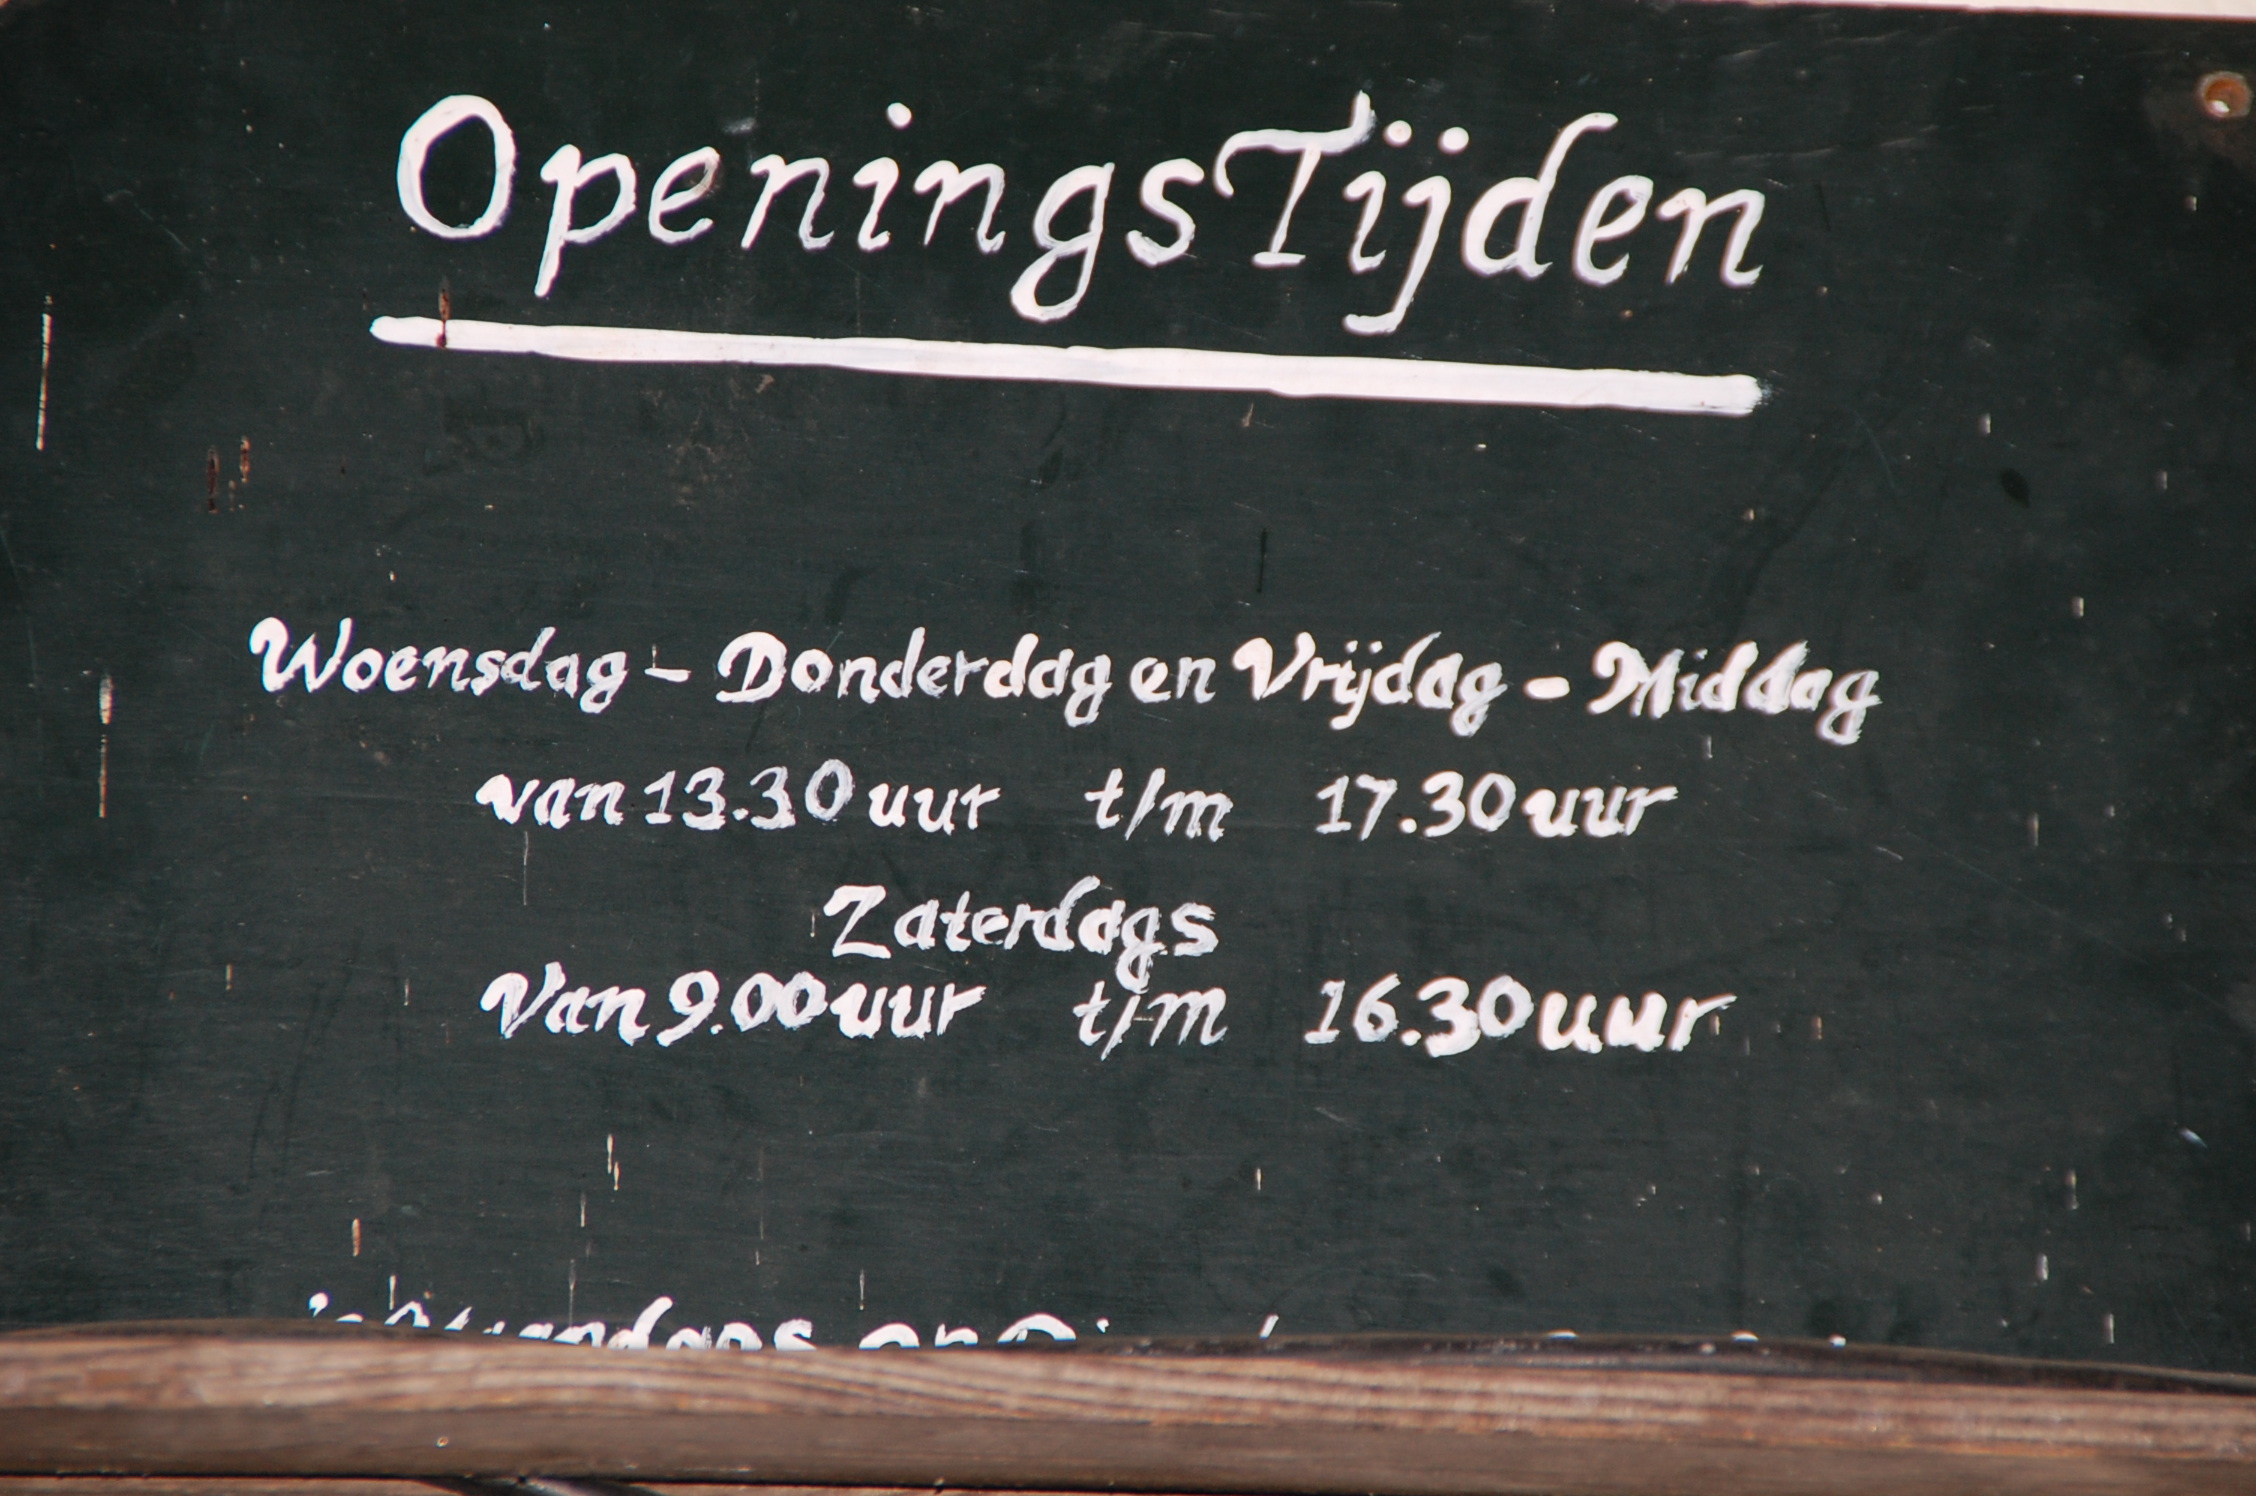 OpeningsTijden
Woensdag - Donderdag en Vrijdag - Middag
van 13.30 uur t/m 17.30 uur
Zaterdags
Van 9.00 uur t/m 16.30 uur